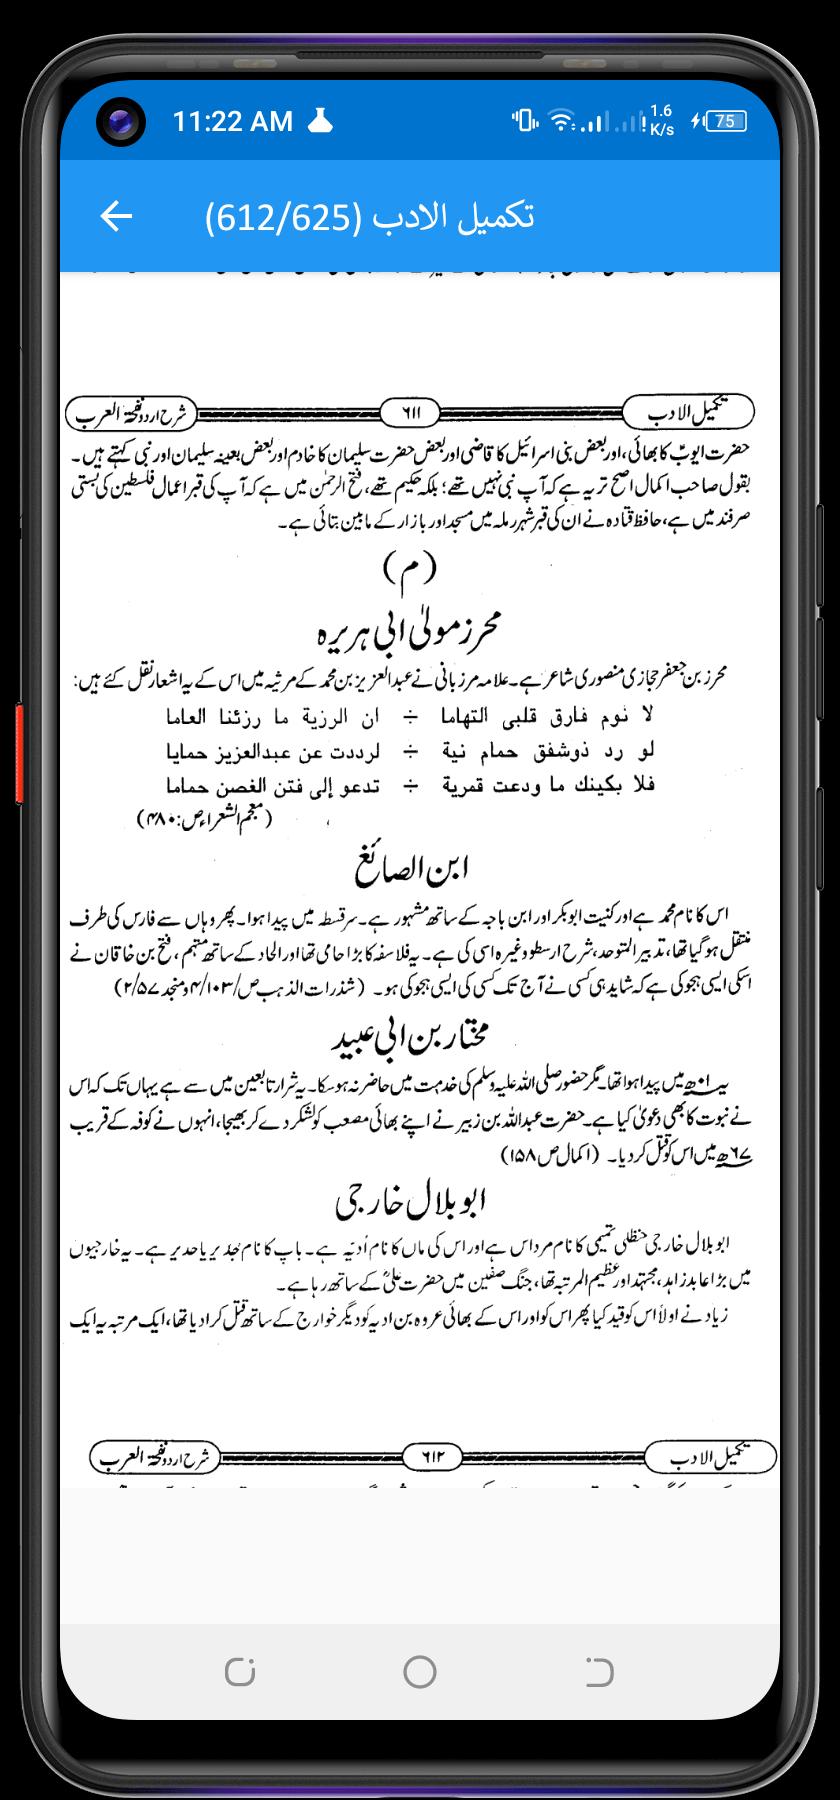 11:22 AM
1.6
K/s
75
تکمیل الادب (612/625)
تکمیل الادب ۶۱۱ شرح اردو نفحۃ العرب
حضرت ایوبؑ کا بھائی، اور بعض بنی اسرائیل کا قاضی اور بعض حضرت سلیمان کا خادم اور بعض بعینہ سلیمان اور نبی کہتے ہیں۔
بقول صاحب اکمال اصح تر یہ ہے کہ آپ نبی نہیں تھے؛ بلکہ حکیم تھے، فتح الرحمٰن میں ہے کہ آپ کی قبر اعمال فلسطین کی بستی
صرفند میں ہے، حافظ قتادہ نے ان کی قبر شہر رملہ میں مسجد اور بازار کے مابین بتائی ہے۔
(م)
محرز مولیٰ ابی ہریرہ
محرز بن جعفر حجازی منصوری شاعر ہے۔ علامہ مرزبانی نے عبدالعزیز بن محمد کے مرثیہ میں اس کے یہ اشعار نقل کئے ہیں:
لا نوم فارق قلبى التهاما ÷ ان الرزية ما رزئنا العاما
لو رد ذوشفق حمام نية ÷ لرددت عن عبدالعزيز حمايا
فلا بكينك ما ودعت قمرية ÷ تدعو إلى فتن الغصن حماما
(معجم الشعراء ص: ۴۸۰)
ابن الصائغ
اس کا نام محمد ہے اور کنیت ابوبکر اور ابن باجہ کے ساتھ مشہور ہے۔ سرقسطہ میں پیدا ہوا۔ پھر وہاں سے فارس کی طرف
منتقل ہو گیا تھا، تدبیر المتوحد، شرح ارسطو وغیرہ اسی کی ہے۔ یہ فلاسفہ کا بڑا حامی تھا اور الحاد کے ساتھ متہم، فتح بن خاقان نے
اسکی ایسی ہجو کی ہے کہ شاید ہی کسی نے آج تک کسی کی ایسی ہجو کی ہو۔ (شذرات الذہب ص/۴/۱۰۳ و منجد ۲/۵۷)
مختار بن ابی عبید
۱ھ میں پیدا ہوا تھا۔ مگر حضور صلی اللہ علیہ وسلم کی خدمت میں حاضر نہ ہو سکا۔ یہ شرار تابعین میں سے ہے یہاں تک کہ اس
نے نبوت کا بھی دعویٰ کیا ہے۔ حضرت عبداللہ بن زبیر نے اپنے بھائی مصعب کو لشکر دے کر بھیجا، انہوں نے کوفہ کے قریب
۶۷ھ میں اس کو قتل کر دیا۔ (اکمال ص ۱۵۸)
ابو بلال خارجی
ابو بلال خارجی حنظلی تمیمی کا نام مرداس ہے اور اس کی ماں کا نام اُدیّہ ہے۔ باپ کا نام جُدیر یا حدیر ہے۔ یہ خارجیوں
میں بڑا عابد زاہد، مجتہد اور عظیم المرتبہ تھا، جنگ صفین میں حضرت علیؓ کے ساتھ رہا ہے۔
زیاد نے اولاً اس کو قید کیا پھر اس کو اور اس کے بھائی عروہ بن ادیہ کو دیگر خوارج کے ساتھ قتل کرا دیا تھا، ایک مرتبہ یہ ایک
تکمیل الادب ۶۱۲ شرح اردو نفحۃ العرب